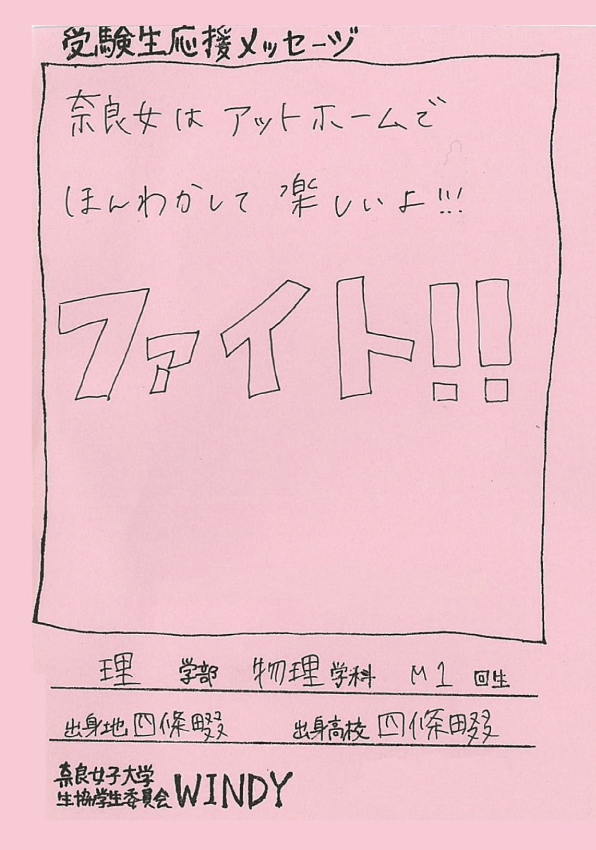 受験生応援メッセージ
奈良女は アットホームで
ほんわかして 楽しいよ!!!
ファイト!!
理 学部 物理 学科 M1 回生
出身地 四條畷 出身高校 四條畷
奈良女子大学
生協学生委員会 WINDY